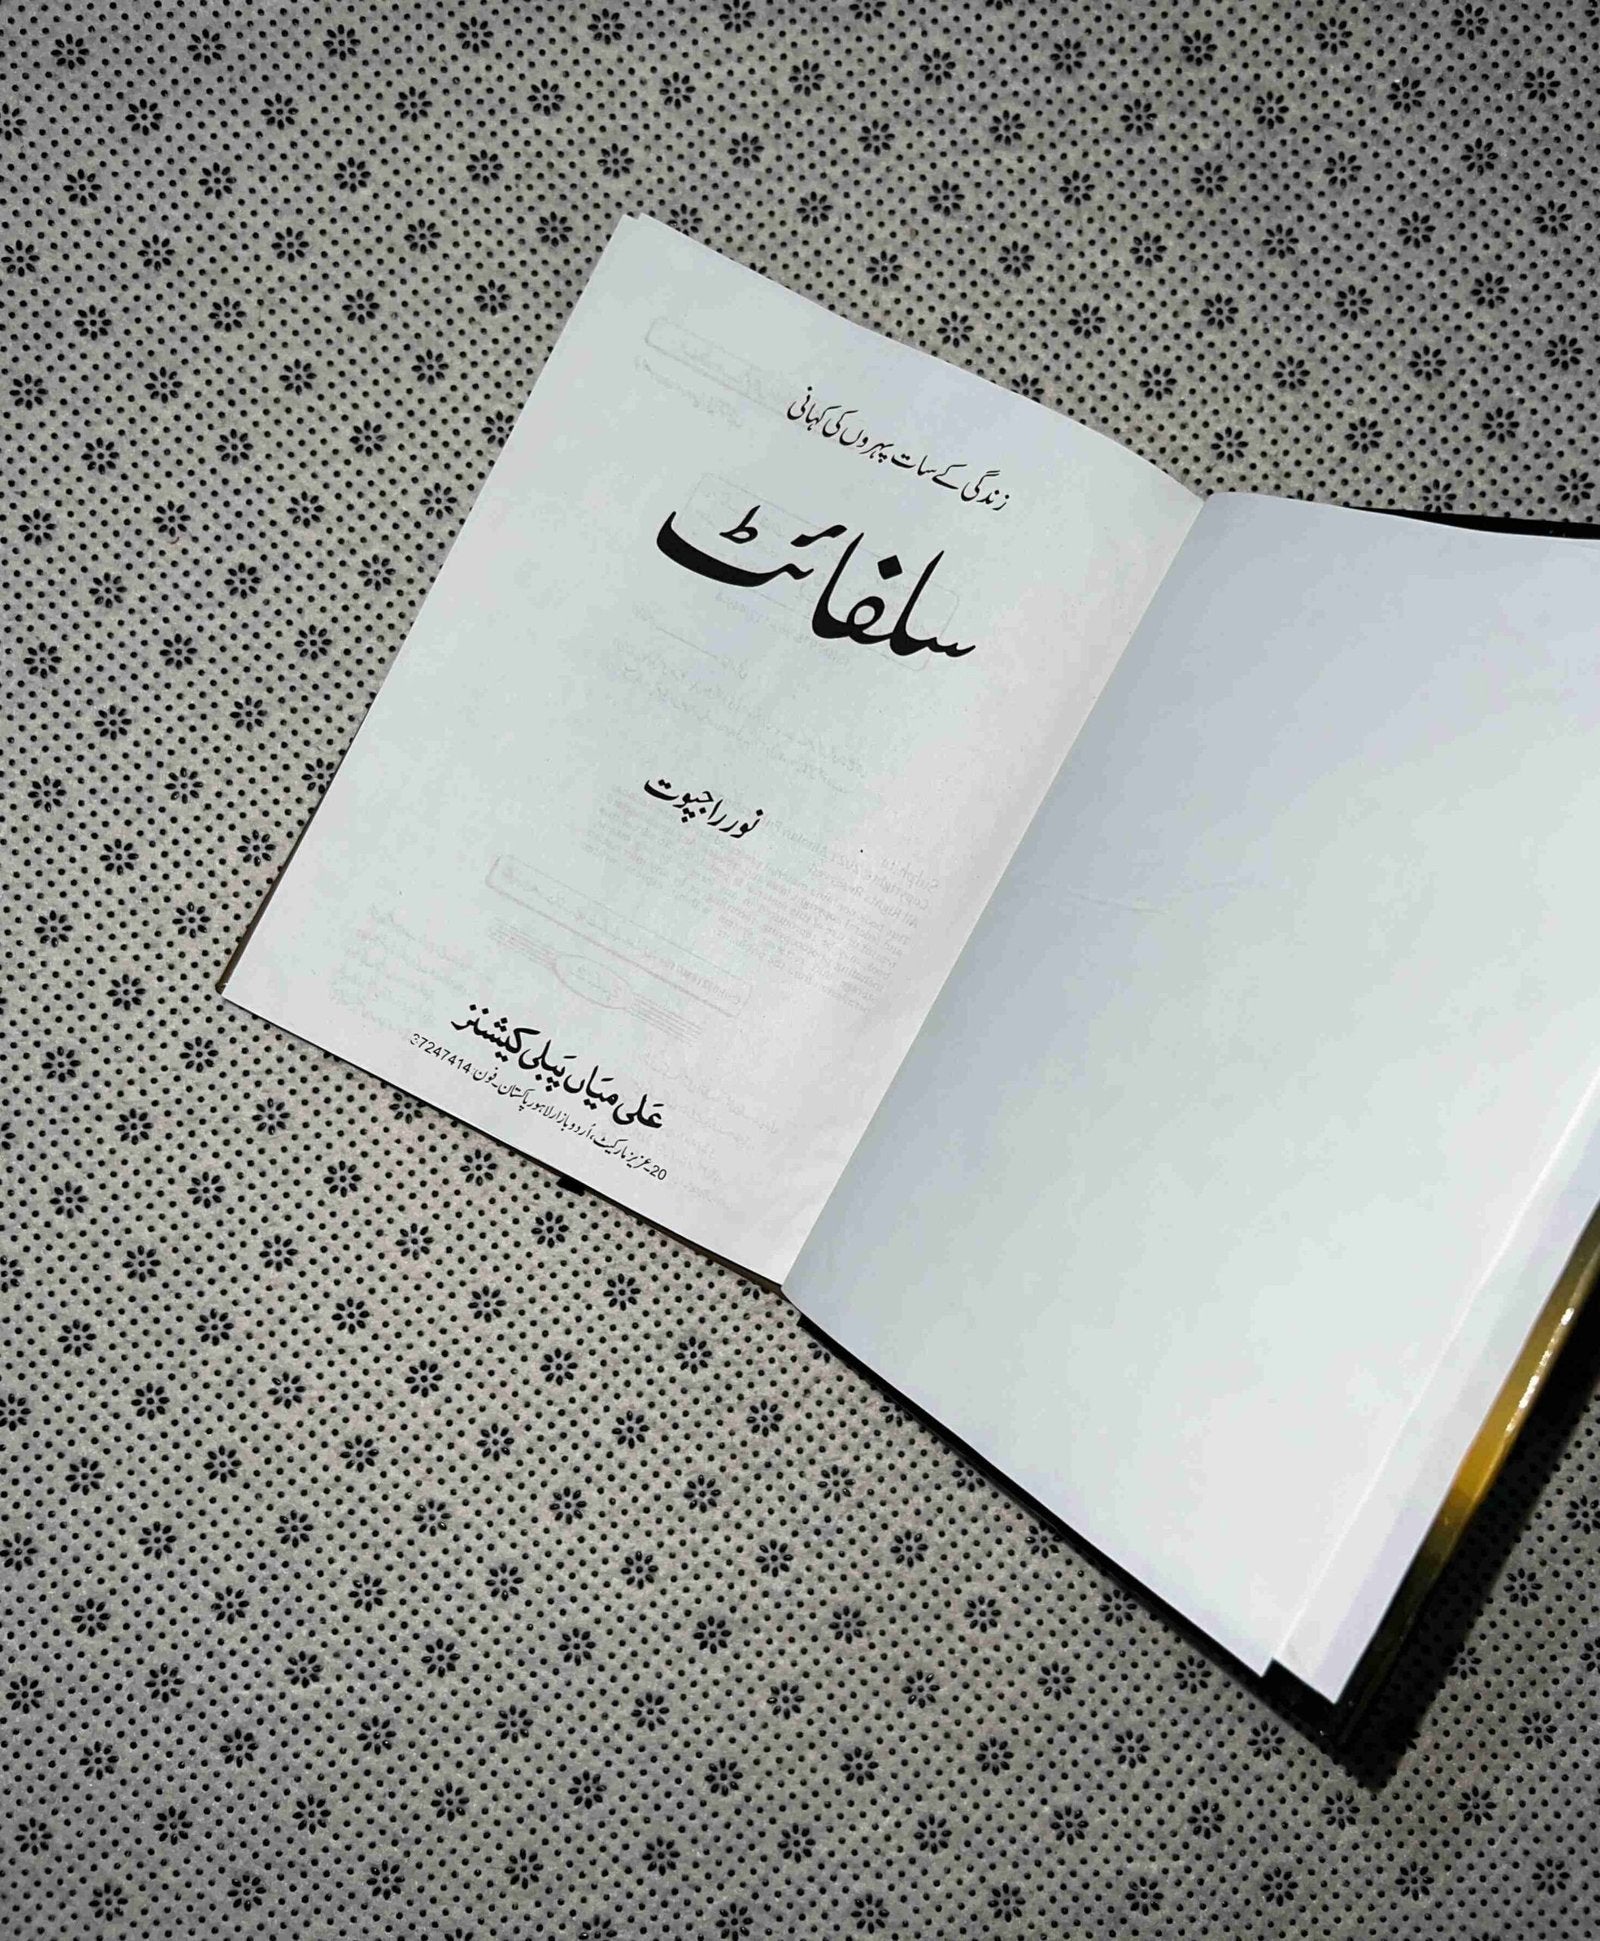 زندگی کے سات پہروں کی کہانی
سلفائٹ
نور راجپوت
علی میاں پبلی کیشنز
20۔عزیز مارکیٹ، اُردو بازار لاہور پاکستان۔ فون: 37247414